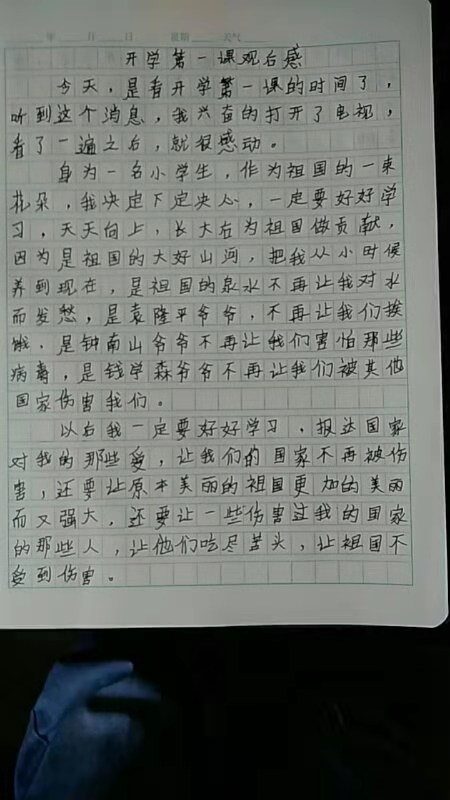 年 月 日 星期 天气
开学第一课观后感
今天，是看开学第一课的时间了，
听到这个消息，我兴奋的打开了电视，
看了一遍之后，就很感动。
身为一名小学生，作为祖国的一束
花朵，我决定下定决心，一定要好好学
习，天天向上，长大后为祖国做贡献，
因为是祖国的大好山河，把我从小时候
养到现在，是祖国的泉水不再让我对水
而发愁，是袁隆平爷爷，不再让我们挨
饿，是钟南山爷爷不再让我们害怕那些
病毒，是钱学森爷爷不再让我们被其他
国家伤害我们。
以后我一定要好好学习，报达国家
对我的那些爱，让我们的国家不再被伤
害，还要让原本美丽的祖国更加的美丽
而又强大，还要让一些伤害过我的国家
的那些人，让他们吃尽苦头，让祖国不
受到伤害。